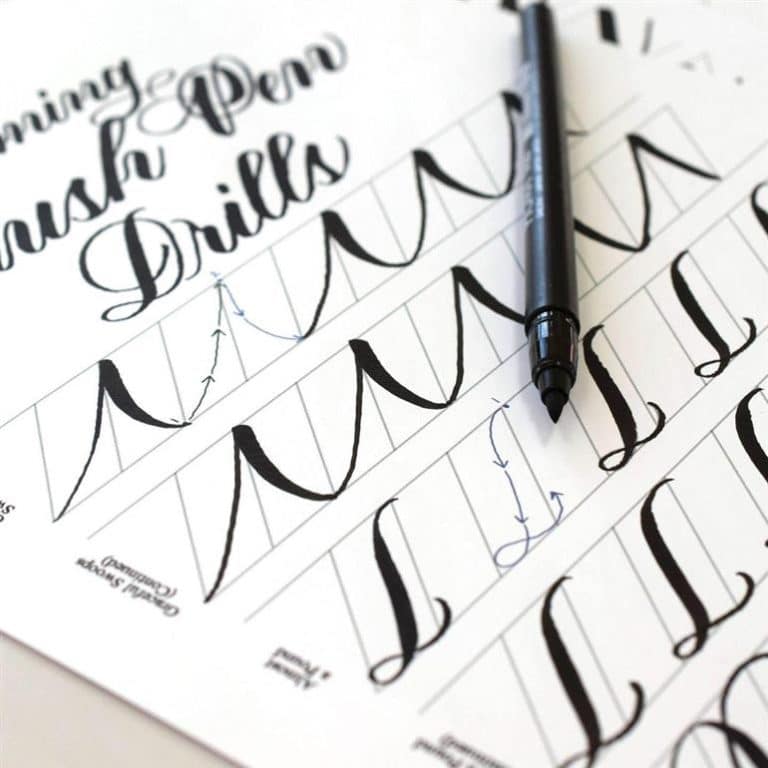 ming
ush Pen
Drills
Sw
Graceful Swoops
(Continued)
Almost
a Pound
Pound
ontinued)